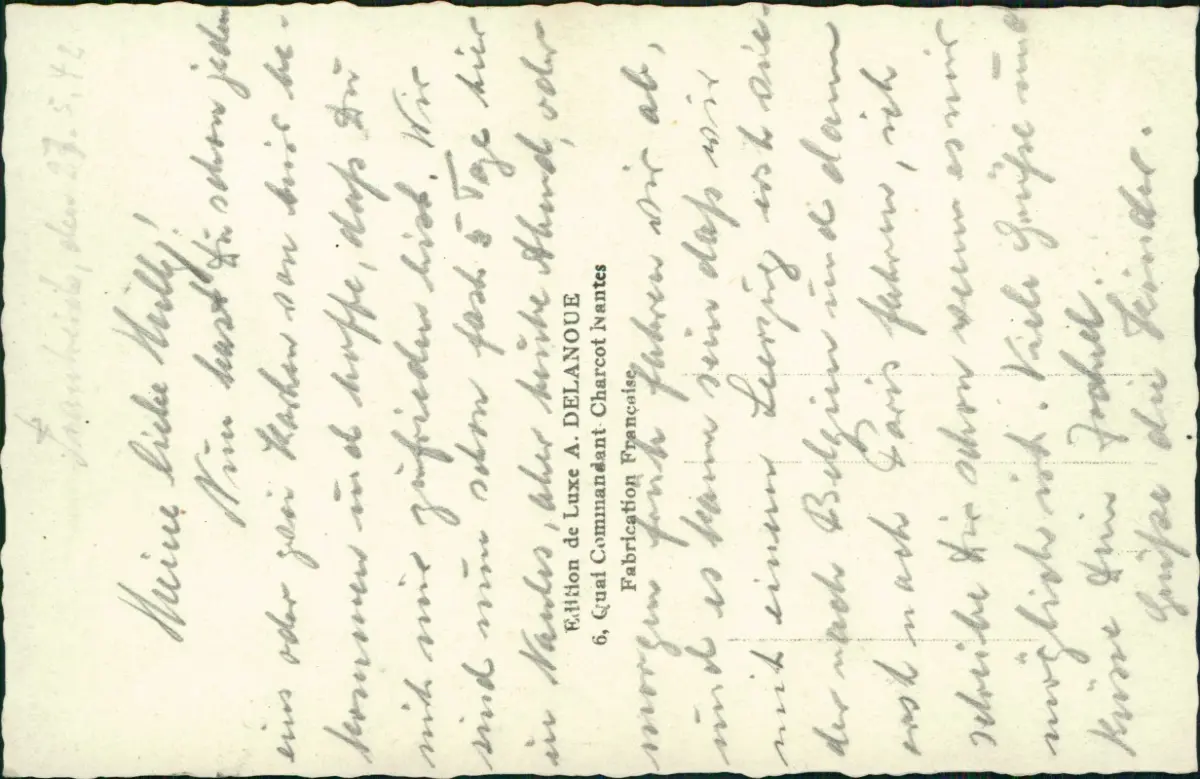 Frankreich, den 27.5.42
Meine liebe Milly!
Nun hast Du schon jeden
ein oder zwei Karten von mir be-
kommen und hoffe, daß Du
mit mir zufrieden bist. Wir
sind nun schon fast 5 Tage hier
in Nantes, aber heute Abend, oder
Edition de Luxe A. DELANOUE
6, Quai Commandant-Charcot Nantes
Fabrication Française
morgen früh fahren wir ab,
und es kann sein daß wir
mit einem erst
der nach Belgien und dann
erst nach Paris fahren, ich
schreibe Dir schon wenn es mir
möglich ist. Viele Grüße und
Küsse Dein
Grüße die Kinder.